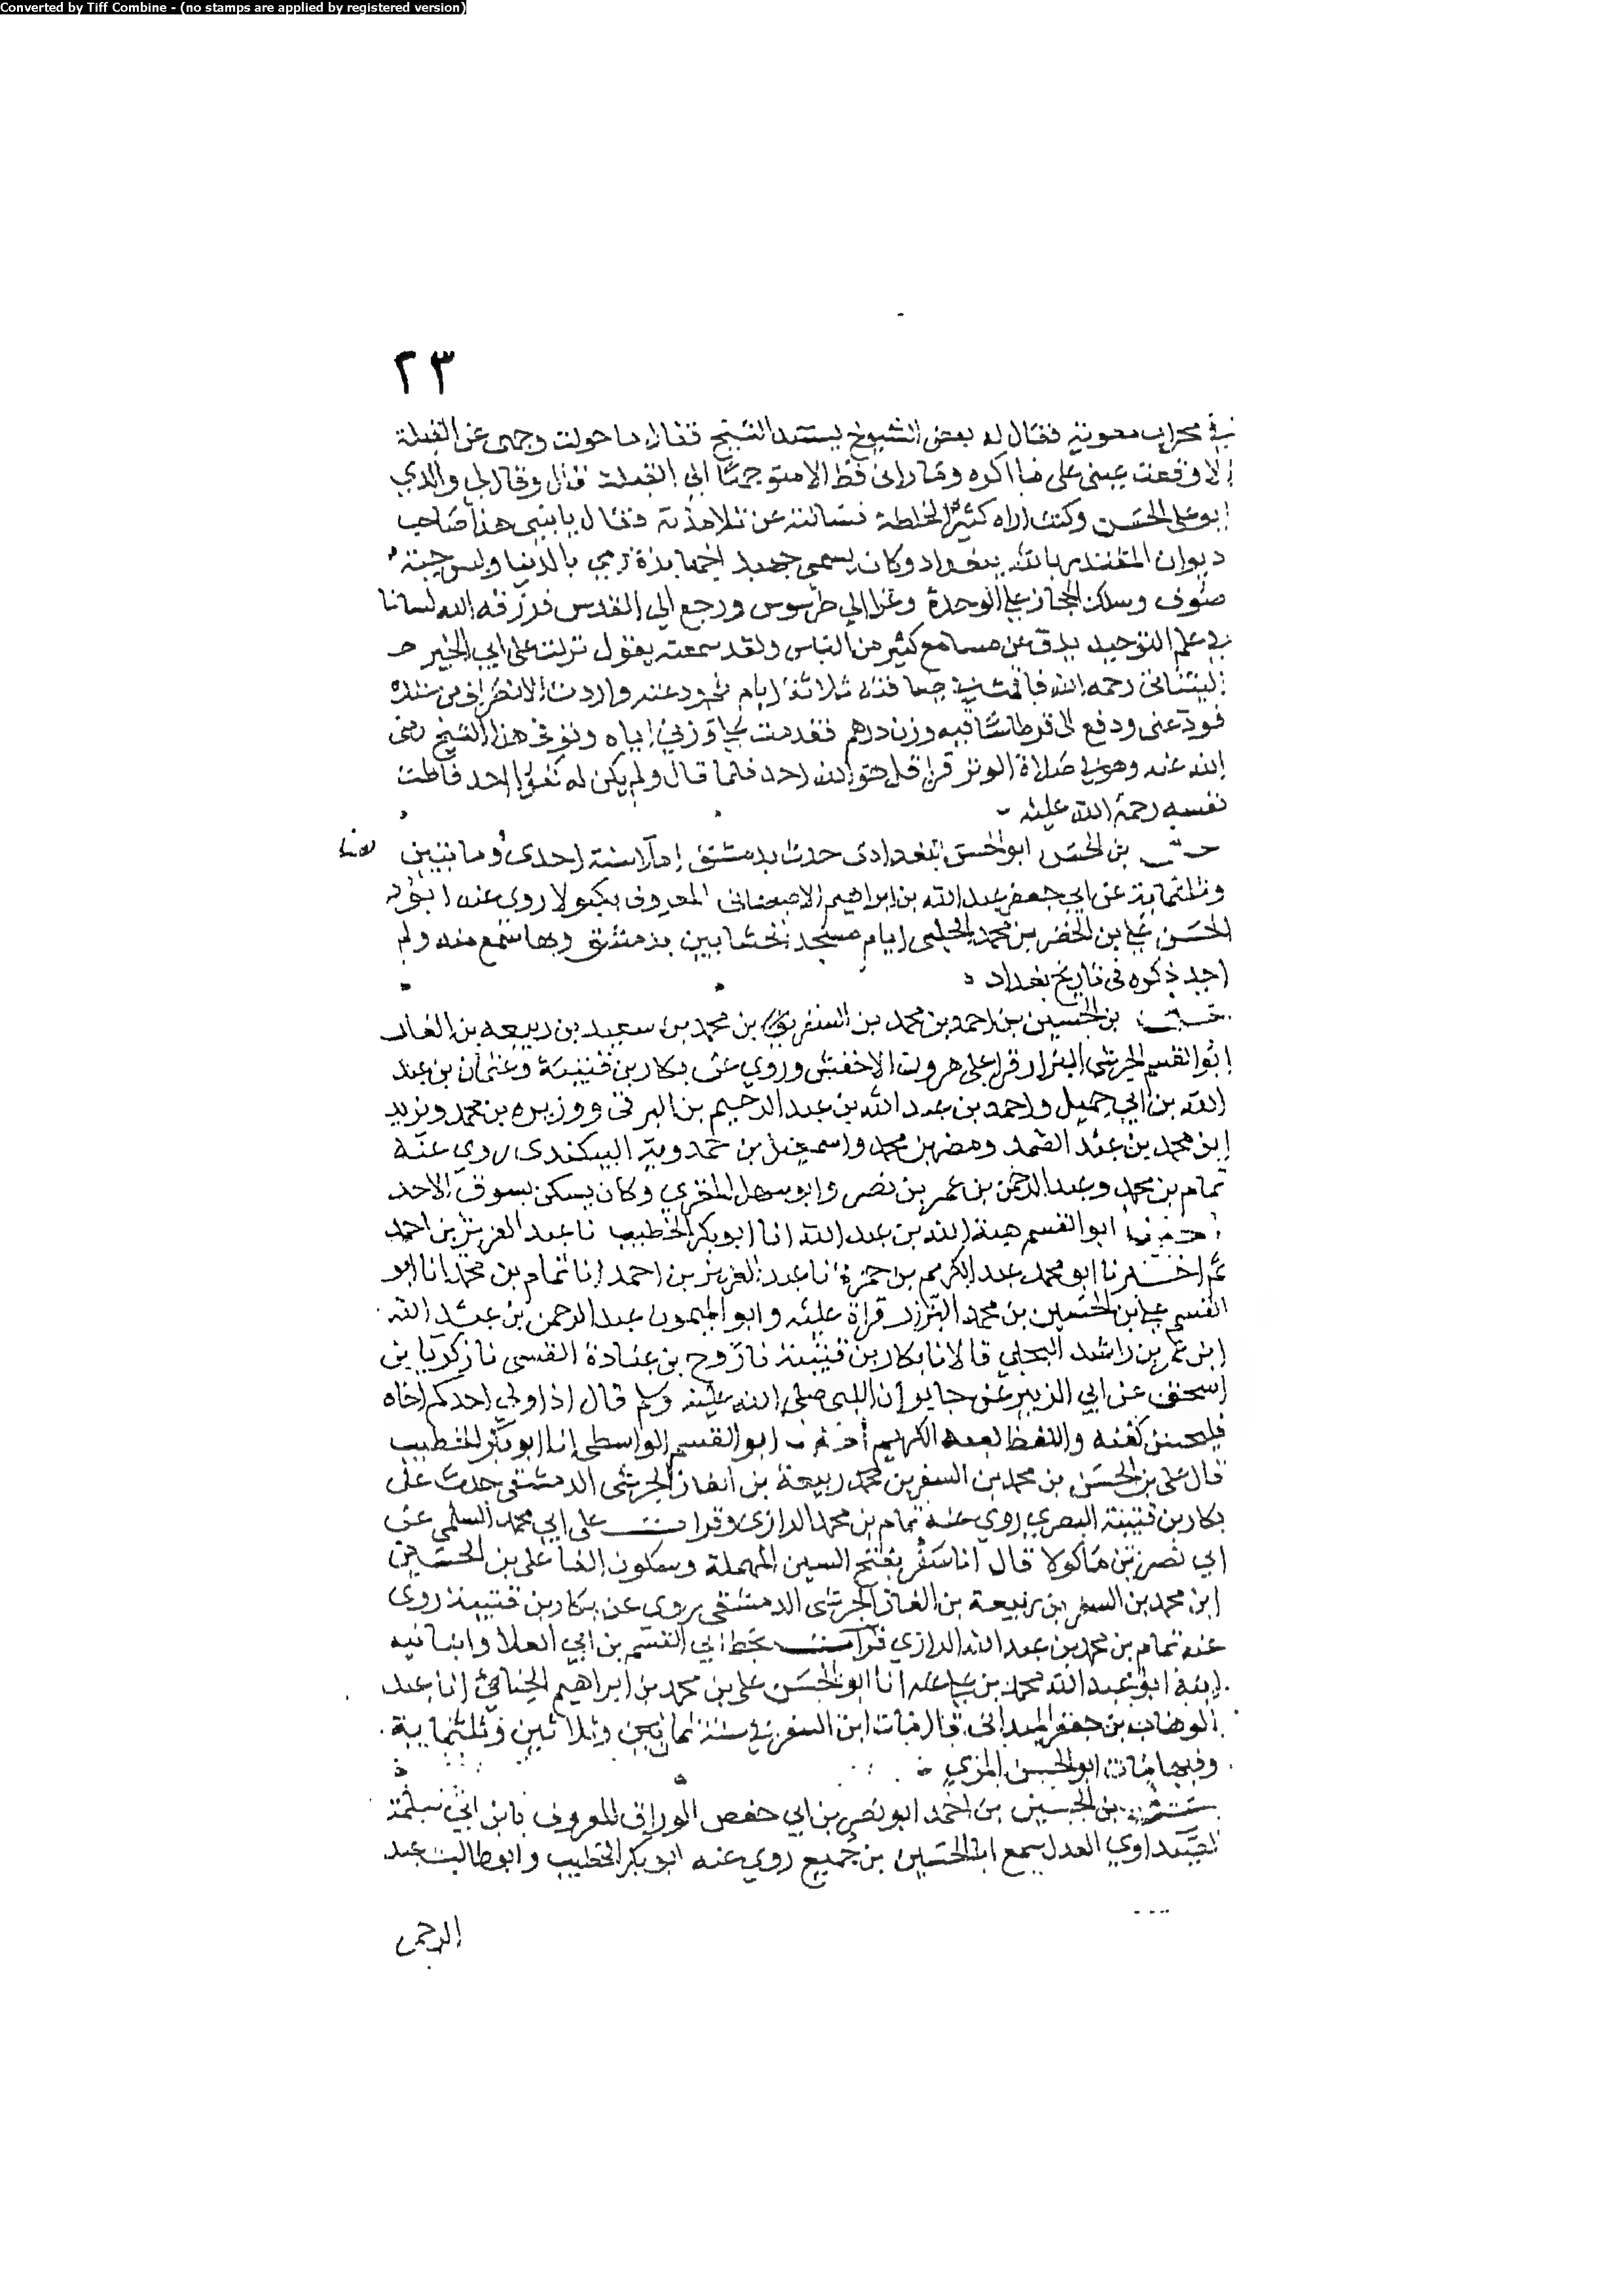 Converted by Tiff Combine - (no stamps are applied by registered version)
٢٣
في محراب معوية فقال له بعض الشيوخ يستند الشيخ فقال ما حولت وجهي عن القبلة
الا وقعت عيني على ما اكره وما راني قط الا متوجها الى القبلة قال وقال لي والدي
ابو علي الحسن وكنت اراه كثير الخلطة فسالته عن تلامذته فقال يا بني هذا صاحب
ديوان المقتدر بالله ببغداد وكان يسمى جهبذ الجهابذة رمي بالدنيا ولبس جبة
صوف وسلك الحجاز على الوحدة وغزا الى طرسوس ورجع الى القدس فرزقه الله لسانا
في علم التوحيد يدق عن مسامع كثير من الناس ولقد سمعته يقول نزلت على ابي الخير
التيناتي رحمه الله فاقمت في ثلاثة ايام عنده واردت الانصراف من عنده
فودعني ودفع الي قرطاسا فيه وزن درهم فقدمت وتوفي هذا الشيخ رضي
الله عنه وهو في صلاة الوتر قرا قل هو الله احد فلما قال ولم يكن له كفوا احد فاظت
نفسه رحمة الله عليه
علي بن الحسن ابو الحسن البغدادي حدث بدمشق املا سنة احدى وثمانين
وثلثماية عن ابي جعفر عبد الله بن ابراهيم الاصبهاني المعروف روى عنه ابو
الحسن علي بن الخضر بن محمد الحلبي ايام مسجد الخشابين بدمشق وبها سمع منه ولم
اجد ذكره في تاريخ بغداد
علي بن الحسين بن احمد بن محمد بن السفر بن محمد بن سعيد بن ربيعة بن الغاز
ابو القسم الجرشي البزار قرا على هرون الاخفش وروى عن بكار بن قتيبة وعثمان بن عبد
الله بن ابي جميل واحمد بن عبد الله بن عبد الرحيم بن البرقي ووزيره بن محمد ويزيد
ابن محمد بن عبد الصمد ومضر بن محمد واسمعيل بن حمدويه البيكندي روى عنه
تمام بن محمد وعبد الرحمن بن عمر بن نصر وابو سهل المقري وكان يسكن بسوق الاحد
اخبرنا ابو القسم هبة الله بن عبد الله انا ابو بكر الخطيب نا عبد العزيز بن احمد
ثم اخبرنا ابو محمد عبد الكريم بن حمزة نا عبد العزيز بن احمد انا تمام بن محمد انا ابو
القسم علي بن الحسين بن محمد البزار قراة عليه وابو الميمون عبد الرحمن بن عبد الله
ابن عمر بن راشد البجلي قالا نا بكار بن قتيبة نا روح بن عبادة القيسي نا زكريا بن
اسحق عن ابي الزبير عن جابر ان النبي صلى الله عليه وسلم قال اذا ولي احدكم اخاه
فليحسن كفنه واللفظ لعبد الكريم اخبرنا ابو القسم الواسطي انا ابو بكر الخطيب
قال علي بن الحسن بن محمد بن السفر بن محمد ربيعة بن الغاز الجرشي الدمشقي حدث عن
بكار بن قتيبة البصري روى عنه تمام بن محمد الرازي وقرات على ابي محمد السلمي عن
ابي نصر بن ماكولا قال اما سفر بفتح السين المهملة وسكون الفا علي بن الحسين
ابن محمد بن السفر بن ربيعة بن الغاز الجرشي الدمشقي يروي عن بكار بن قتيبة روى
عنه تمام بن محمد بن عبد الله الرازي قرات بخط ابي القسم بن ابي العلا وانبانيه
ابنه ابو عبد الله محمد بن علي عنه انا ابو الحسن علي بن محمد بن ابراهيم الحنائي انا عبد
الوهاب بن جعفر الميداني قال مات ابن السفر في سنة ثمانين وثلاثين وثلثماية
وفيها مات ابو الحسن المزي
علي بن الحسين بن احمد ابو نصر بن ابي حفص الوراق المعروف بابن ابي سلمة
الصيداوي العدل سمع ابا الحسين بن جميع روى عنه ابو بكر الخطيب وابو طالب عبد
الرحمن